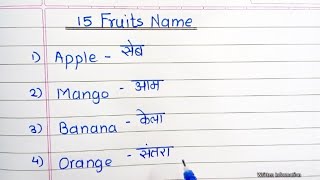 15 Fruits Name
1) Apple - सेब
2) Mango - आम
3) Banana - केला
4) Orange - संतरा
Written Information